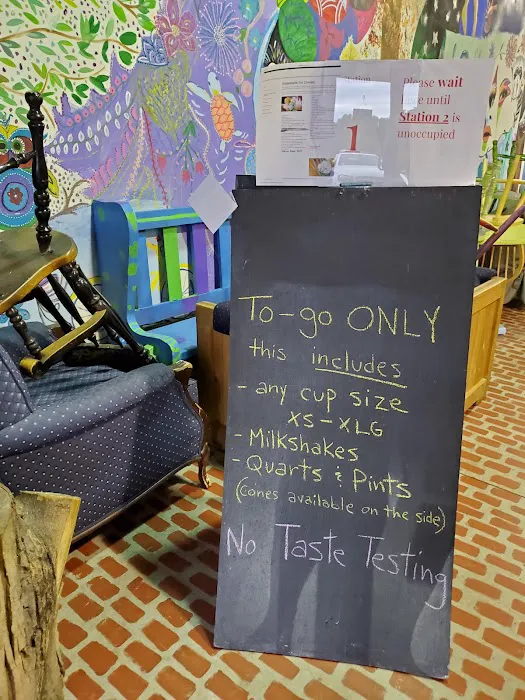 Please wait
here until
Station 2 is
unoccupied
1
To-go ONLY
this includes
- any cup size
XS-XLG
- Milkshakes
- Quarts & Pints
(cones available on the side)
No Taste Testing